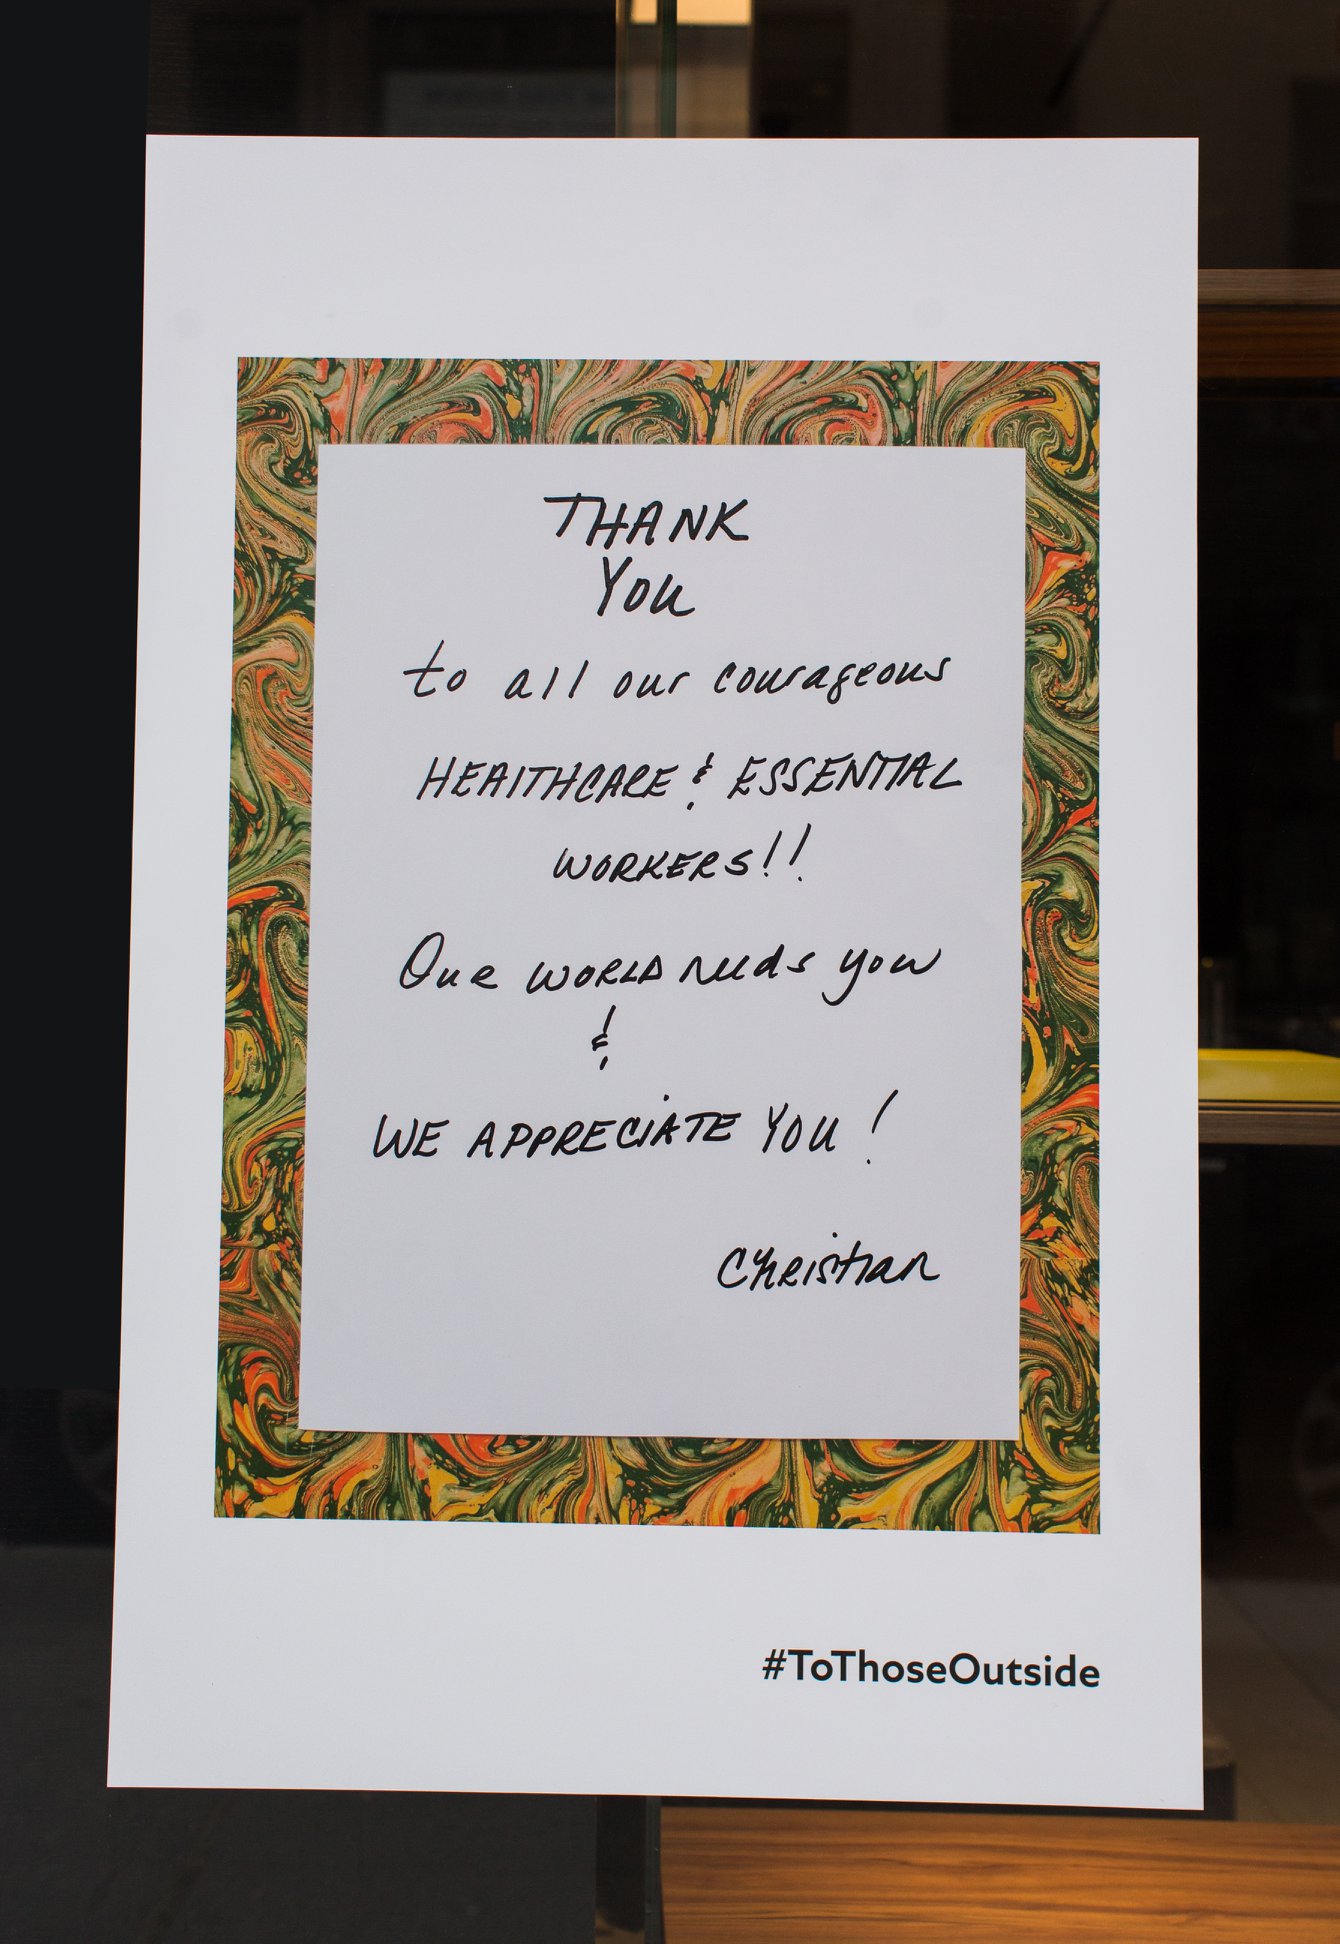 THANK
YOU
to all our courageous
HEALTHCARE & ESSENTIAL
WORKERS!!
Our WORLD needs you
&
WE APPRECIATE YOU!
Christian
#ToThoseOutside